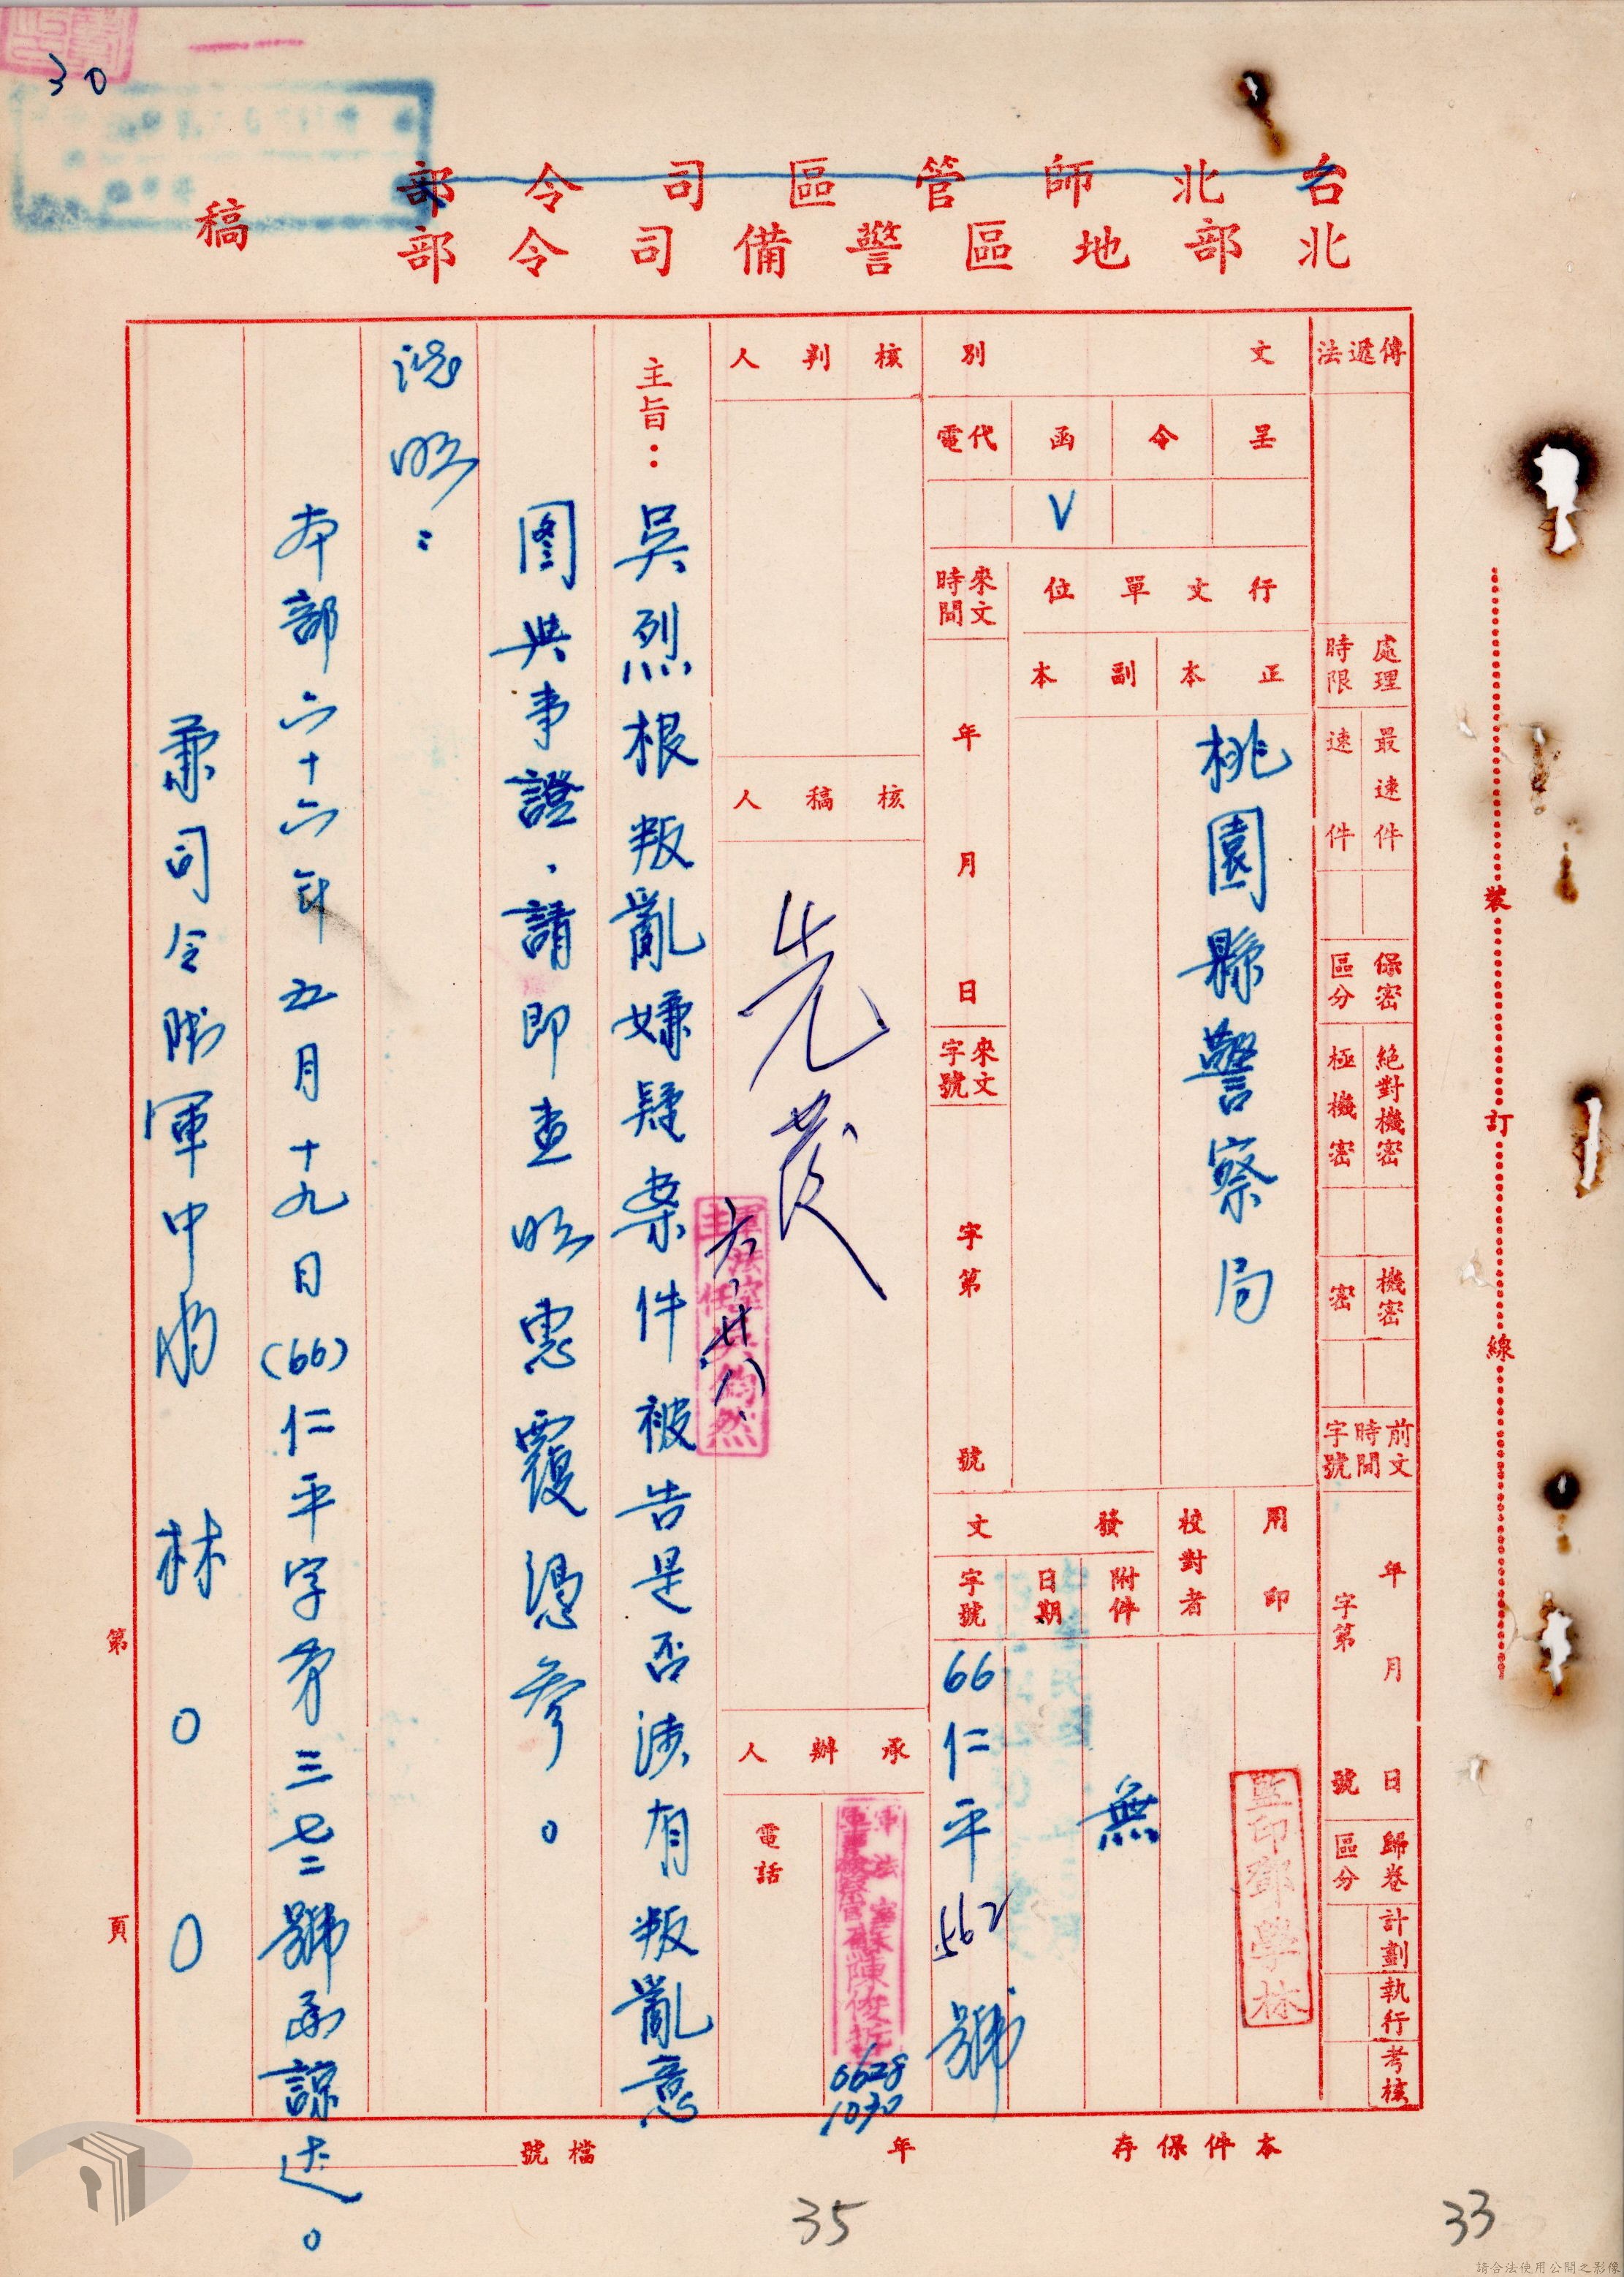 30
台北師管區司令部
北部地區警備司令部
稿
傳遞法
處理時限
最速件
速件
保密區分
絕對機密
極機密
機密
密
前文時間字號
年月日
字第號
歸卷區分
計劃
執行
考核
文別
呈
令
函
代電
V
行文單位
正本
副本
桃園縣警察局
來文時間
年月日
來文字號
字第號
用印
監印鄧學林
校對者
發文
附件
無
日期
字號
66仁平562號
核判人
核稿人
先發
六、廿八、
承辦人
電話
0628
1030
主旨：吳烈根叛亂嫌疑案件被告是否涉有叛亂意
圖與事證，請即查明惠覆憑參。
說明：
本部六十六年五月十九日(66)仁平字第三七二號函諒達。
兼司令陸軍中將 林○○
第頁
裝訂線
本件保存年
檔號
35
33
請合法使用公開之影像